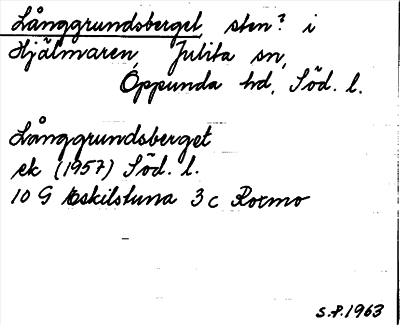 Långgrundsberget, sten? i
Hjälmaren, Julita sn,
Oppunda hd, Söd. l.
Långgrundsberget
ek (1957) Söd. l.
10 G Eskilstuna 3 c Rormo
S.P. 1963